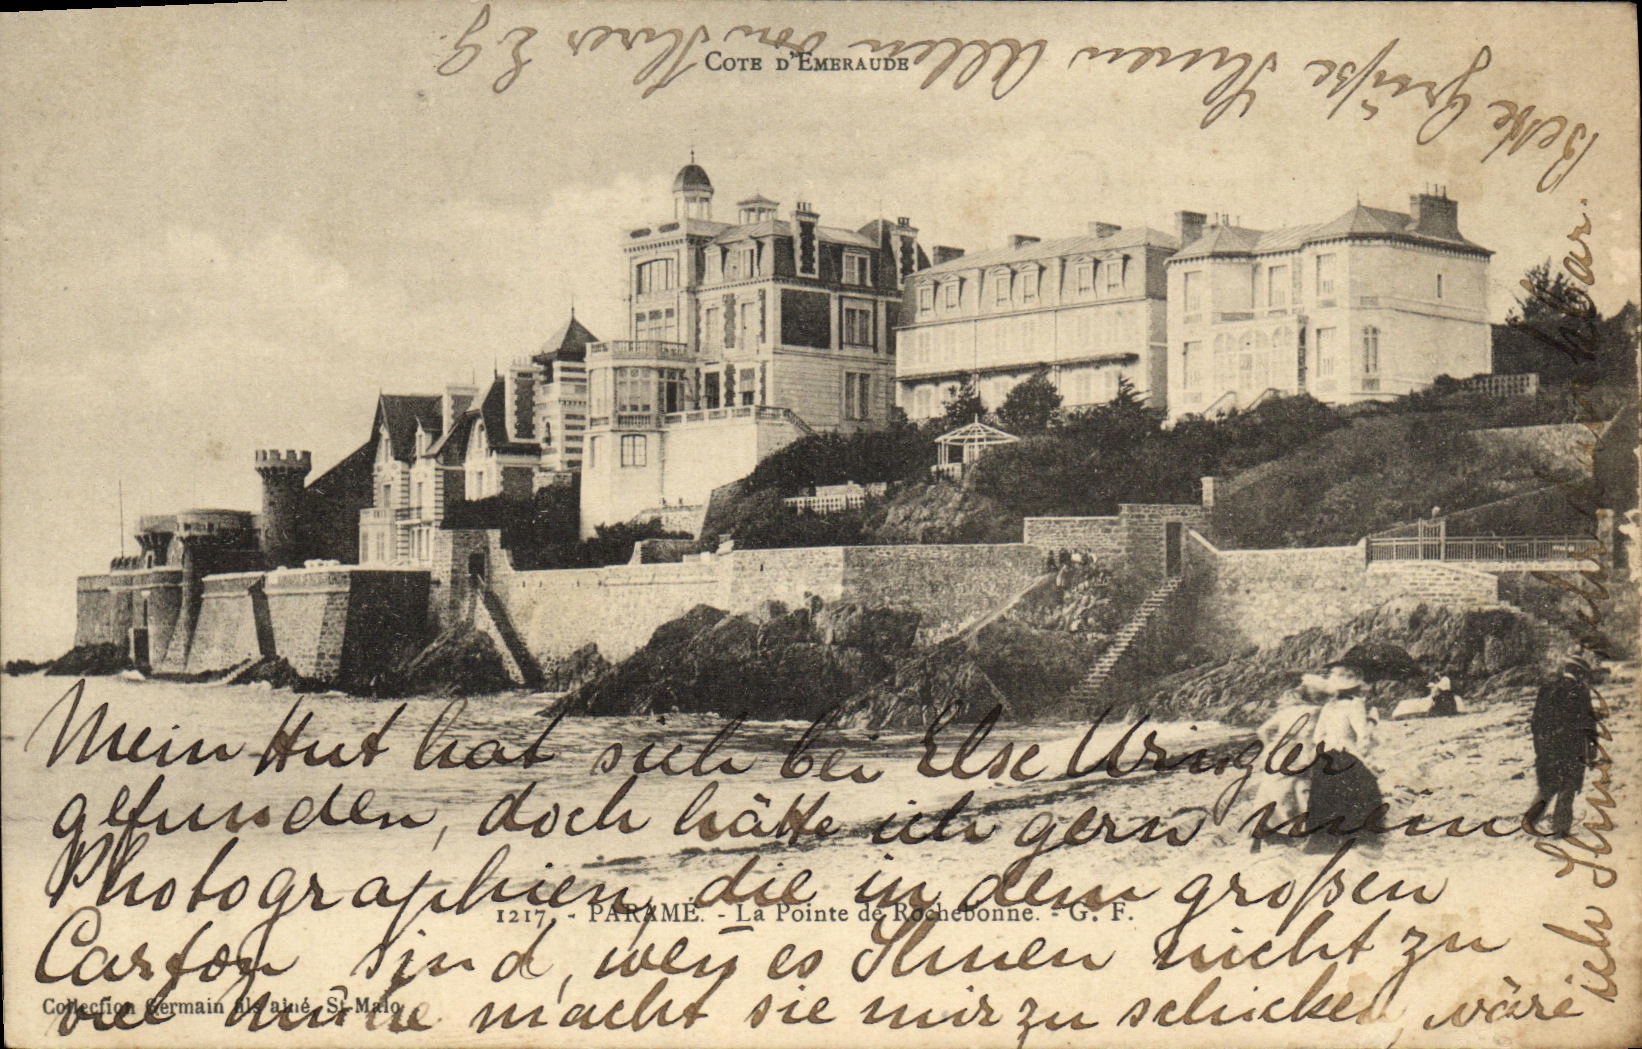 COTE D'EMERAUDE
Mein Hut hat sich bei Else Wrigler
gefunden, doch hätte ich gern meine
Photographien, die in dem großen
Carton sind, weñ es Ihnen nicht zu
viel Mühe macht sie mir zu schicken, wäre
ich Ihnen sehr dankbar.
Beste Grüße Ihnen Allen von Ihrer E G.
1217. - PARAMÉ. - La Pointe de Rochebonne. - G. F.
Collection Germain fils aîné, St-Malo